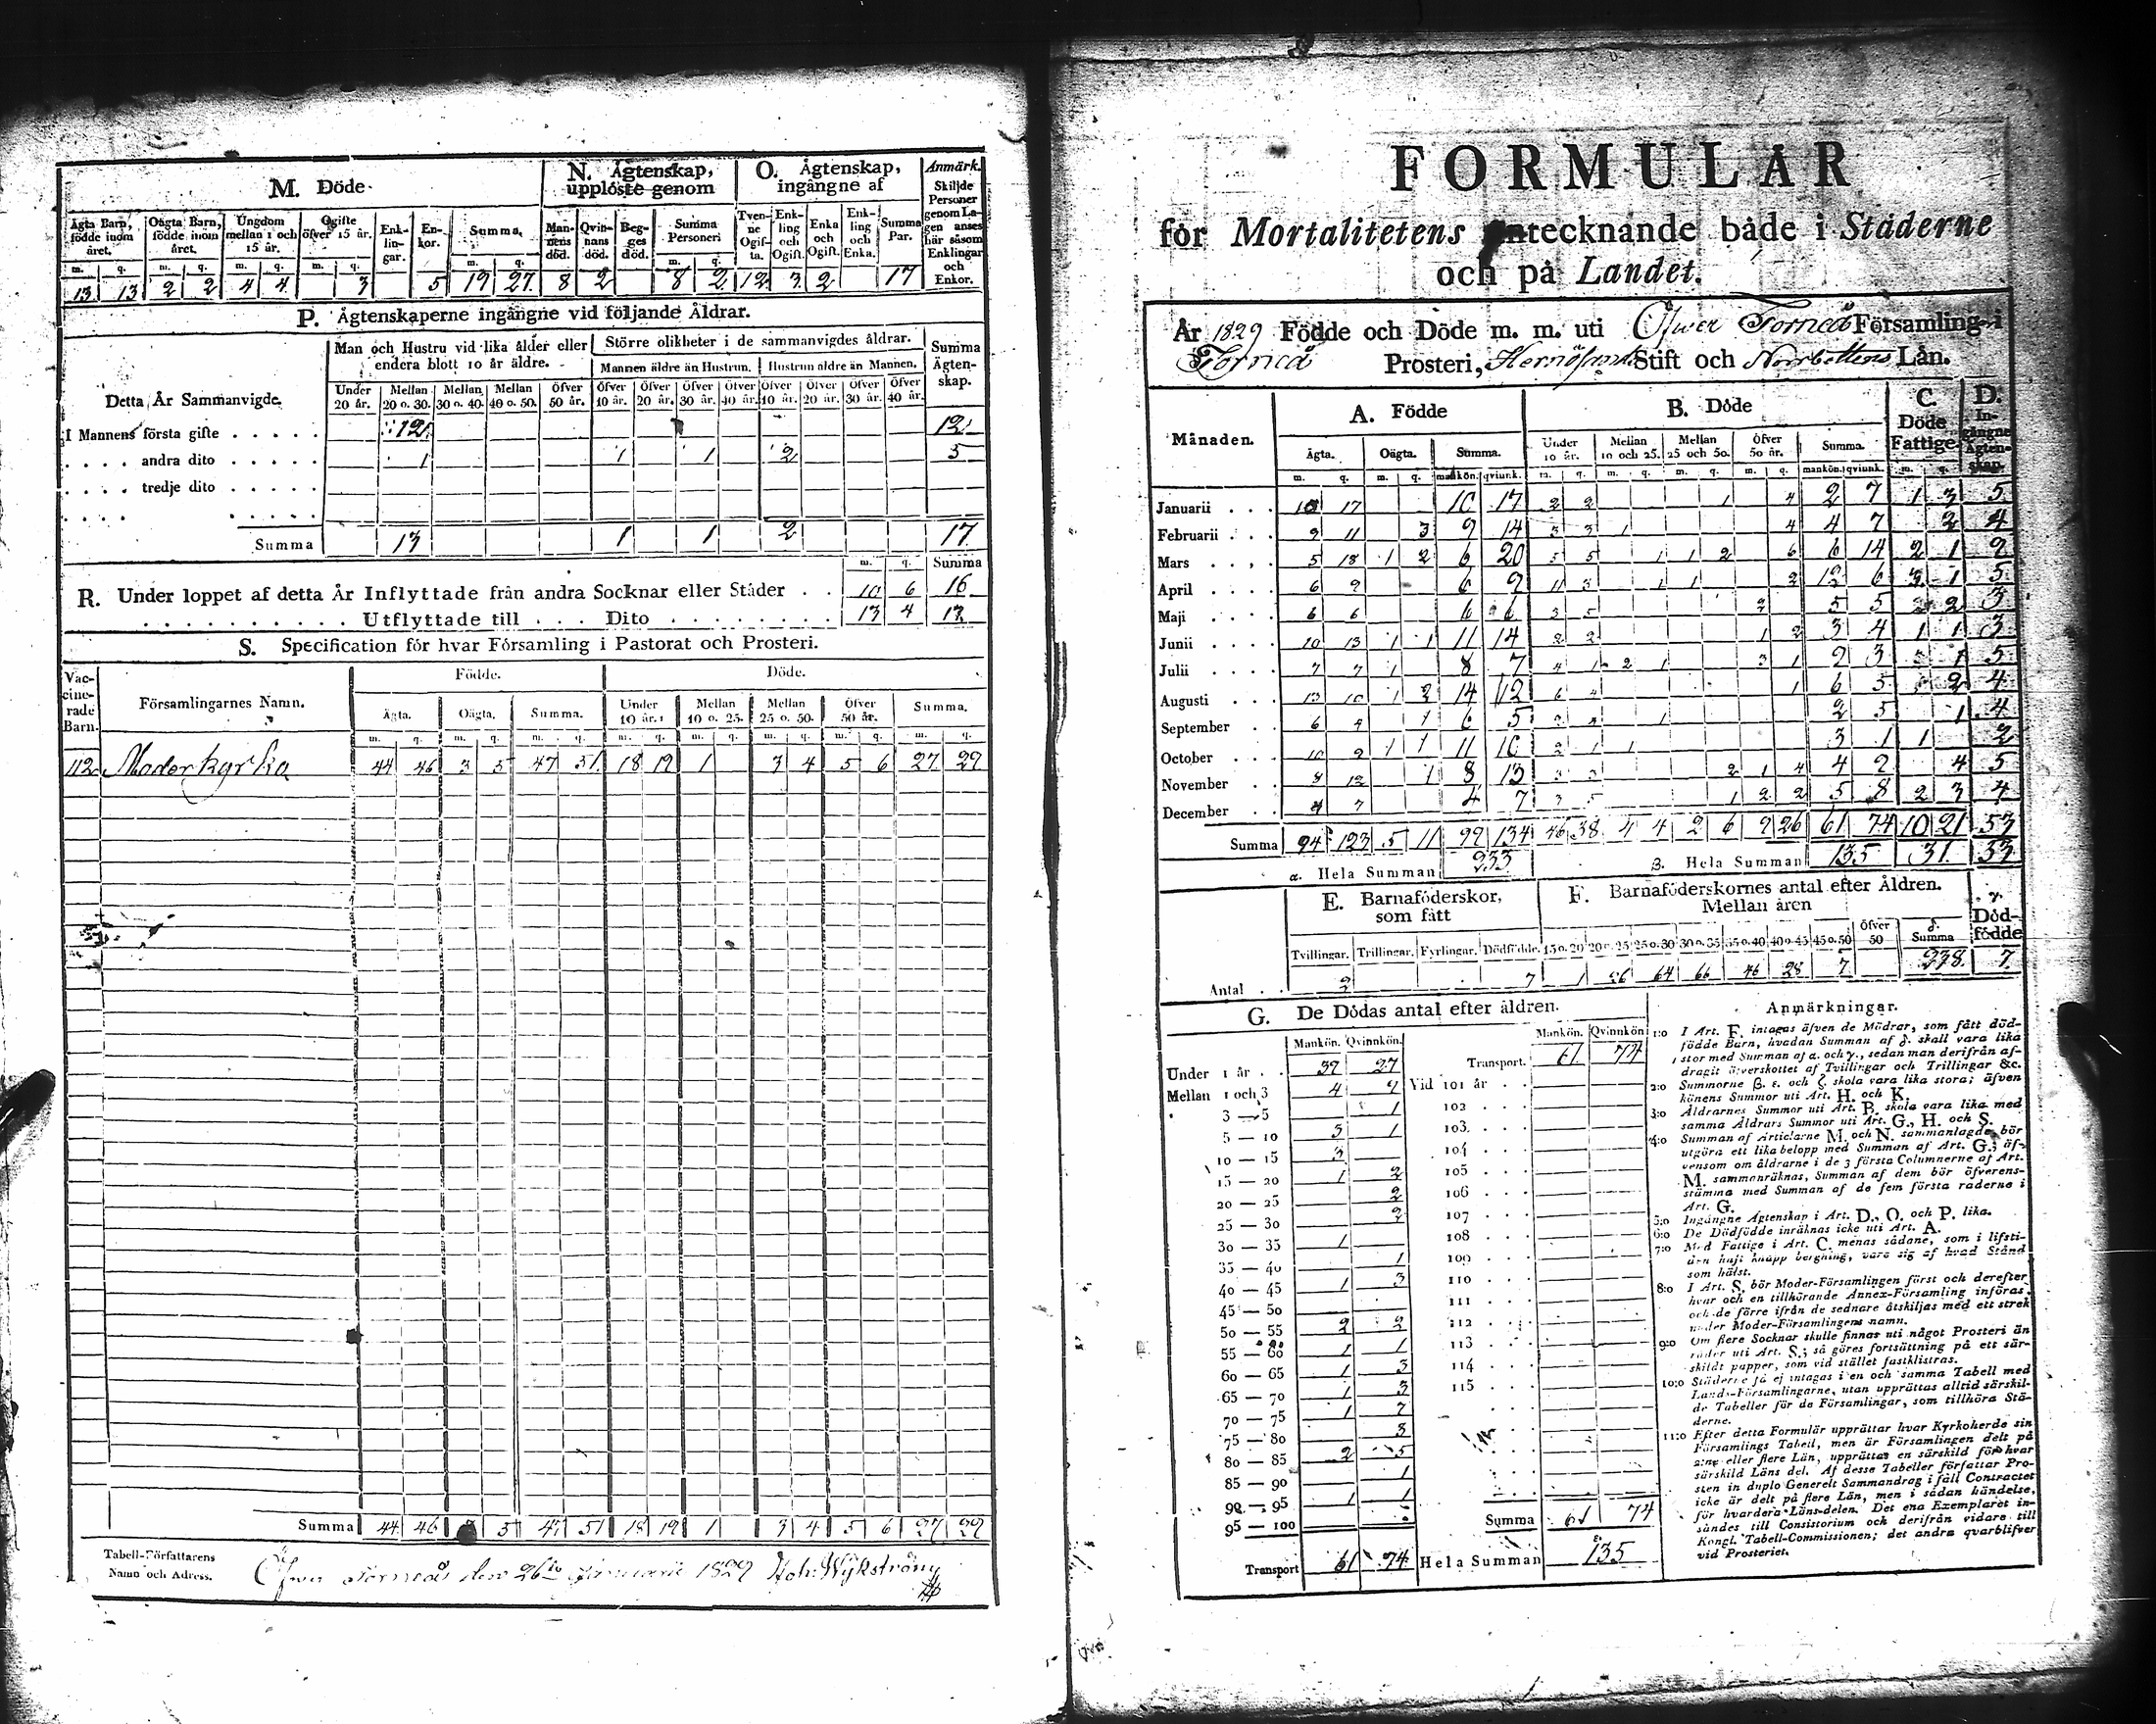 M. Döde.
N. Ägtenskap, upplöste genom
O. Ägtenskap, ingångne af
Anmärk. Skiljde Personer genom Lagen anses här såsom Enklingar och Enkor.
Ägta Barn, födde inom året.
Oägta Barn, födde inom året.
Ungdom mellan 1 och 15 år.
Ogifte öfver 15 år.
Enklingar.
Enkor.
Summa.
Mannens död.
Qvinnans död.
Begges död.
Summa Personer
Tvenne Ogifta.
Enkling och Ogift.
Enka och Ogift.
Enkling och Enka.
Summa Par.
m. q. m. q. m. q. m. q. m. q. m. q.
13 13 2 2 4 4 3 5 19 27 8 2 8 2 12 3 2 17
P. Ägtenskaperne ingångne vid följande Åldrar.
Detta År Sammanvigde.
Man och Hustru vid lika ålder eller endera blott 10 år äldre.
Större olikheter i de sammanvigdes åldrar.
Mannen äldre än Hustrun.
Hustrun äldre än Mannen.
Summa Ägtenskap.
Under 20 år. Mellan 20 o. 30. Mellan 30 o. 40. Mellan 40 o. 50. Öfver 50 år. Öfver 10 år. Öfver 20 år. Öfver 30 år. Öfver 40 år. Öfver 10 år. Öfver 20 år. Öfver 30 år. Öfver 40 år.
I Mannens första gifte . . . . . 12 12
. . . . andra dito . . . . . 1 1 1 2 5
. . . . tredje dito . . . . .
Summa 13 1 1 2 17
m. q. Summa
R. Under loppet af detta År Inflyttade från andra Socknar eller Städer . . 10 6 16
Utflyttade till . . . Dito . . . . . . . . 13 4
S. Specification för hvar Församling i Pastorat och Prosteri.
Vaccinerade Barn.
Församlingarnes Namn.
Födde.
Döde.
Ägta. Oägta. Summa. Under 10 år. Mellan 10 o. 25. Mellan 25 o. 50. Öfver 50 år. Summa.
m. q. m. q. m. q. m. q. m. q. m. q. m. q. m. q.
112 Moderkyrka 44 46 3 5 47 51 18 19 1 3 4 5 6 27 29
Summa 44 46 5 47 51 18 19 1 3 4 5 6 27 29
Tabell-Författarens Namn och Adress.
Öfver Torneå den 26 Januarii 1829 Joh: Wykström
FORMULAR
för Mortalitetens antecknande både i Städerne
och på Landet.
År 1829 Födde och Döde m. m. uti Öfwer Torneå Församling i
Torneå Prosteri, Hernösands Stift och Norrbottens Län.
Månaden.
A. Födde
B. Döde
C. Döde Fattige.
D. Ingångne Ägtenskap.
Ägta. Oägta. Summa. Under 10 år. Mellan 10 och 25. Mellan 25 och 50. Öfver 50 år. Summa.
m. q. m. q. mankön. qvinnk. m. q. m. q. m. q. m. q. mankön. qvinnk. m. q.
Januarii . . . 10 17 10 17 2 2 1 4 2 7 1 3 5
Februarii . . . 9 11 3 9 14 3 3 1 4 4 7 2 4
Mars . . . . 5 18 1 2 6 20 5 5 1 1 2 6 6 14 2 1 9
April . . . . 6 9 6 9 11 3 1 1 2 12 6 3 1 5
Maji . . . . 6 6 6 6 3 5 2 5 5 2 2 3
Junii . . . . 10 13 1 1 11 14 2 2 1 2 3 4 1 1 3
Julii . . . . 7 7 1 8 7 4 1 2 1 3 1 9 3 1 5
Augusti . . . 13 10 1 2 14 12 6 4 1 6 5 2 4
September . . 6 4 1 6 5 2 4 1 2 5 1 4
October . . . 10 9 1 1 11 10 2 1 1 3 1 1 2
November . . 8 12 1 8 13 2 1 4 4 2 4 5
December . . 4 7 4 7 3 5 1 2 2 5 8 2 3 4
Summa 94 123 5 11 99 134 46 38 4 4 2 6 9 26 61 74 10 21 53
α. Hela Summan 233
β. Hela Summan 135 31 53
E. Barnaföderskor, som fått
F. Barnaföderskornes antal efter Åldren. Mellan åren
γ. Dödfödde
Tvillingar. Trillingar. Fyrlingar. Dödfödde. 15 o. 20 20 o. 25 25 o. 30 30 o. 35 35 o. 40 40 o. 45 45 o. 50 Öfver 50 δ. Summa
Antal . . 2 7 1 26 64 66 46 28 7 238 7
G. De Dödas antal efter åldren.
Mankön. Qvinnkön. Mankön. Qvinnkön.
Under 1 år . . 39 27 Transport. 61 74
Mellan 1 och 3 4 9 Vid 101 år . .
3 — 5 1 102 . . .
5 — 10 3 1 103 . . .
10 — 15 3 104 . . .
15 — 20 1 2 105 . . .
20 — 25 2 106 . . .
25 — 30 2 107 . . .
30 — 35 1 108 . . .
35 — 40 1 109 . . .
40 — 45 1 3 110 . . .
45 — 50 111 . . .
50 — 55 2 2 112 . . .
55 — 60 1 1 113 . . .
60 — 65 1 3 114 . . .
65 — 70 1 3 115 . . .
70 — 75 1 7
75 — 80 3
80 — 85 2 5
85 — 90 1
90 — 95 1 1
95 — 100 Summa 61 74
Transport 61 74 Hela Summan 135
Anmärkningar.
1:o I Art. F. intagas äfven de Mödrar, som fått död-
födde Barn, hvadan Summan af δ. skall vara lika
stor med Summan af α. och γ., sedan man derifrån af-
dragit öfverskottet af Tvillingar och Trillingar &c.
2:o Summorne β. ε. och ζ. skola vara lika stora; äfven
könens Summor uti Art. H. och K.
3:o Åldrarnes Summor uti Art. B. skola vara lika med
samma Åldrars Summor uti Art. G., H. och S.
4:o Summan af Articlarne M. och N. sammanlagde, bör
utgöra ett lika belopp med Summan af Art. G.; äf-
vensom om åldrarne i de 3 första Columnerne af Art.
M. sammanräknas, Summan af dem bör öfverens-
stämma med Summan af de fem första raderne i
Art. G.
5:o Ingångne Ägtenskap i Art. D., O. och P. lika.
6:o De Dödfödde inräknas icke uti Art. A.
7:o Med Fattige i Art. C. menas sådane, som i lifsti-
den haft knapp bergning, vare sig af hvad Stånd
som hälst.
8:o I Art. S. bör Moder-Församlingen först och derefter
hvar och en tillhörande Annex-Församling införas,
och de förre ifrån de sednare åtskiljas med ett strek
under Moder-Församlingens namn.
9:o Om flere Socknar skulle finnas uti något Prosteri än
rader uti Art. S.; så göres fortsättning på ett sär-
skildt papper, som vid stället fastklistras.
10:o Städerne få ej intagas i en och samma Tabell med
Lands-Församlingarne, utan upprättas alltid särskil-
de Tabeller för de Församlingar, som tillhöra Stä-
derne.
11:o Efter detta Formulär upprättar hvar Kyrkoherde sin
Församlings Tabell, men är Församlingen delt på
tvenne eller flere Län, upprättas en särskild för hvar
särskild Läns del. Af desse Tabeller författar Pro-
sten in duplo Generelt Sammandrag i fall Contractet
icke är delt på flere Län, men i sådan händelse,
för hvardera Läns-delen. Det ena Exemplaret in-
sändes till Consistorium och derifrån vidare till
Kongl. Tabell-Commissionen; det andra qvarblifver
vid Prosteriet.